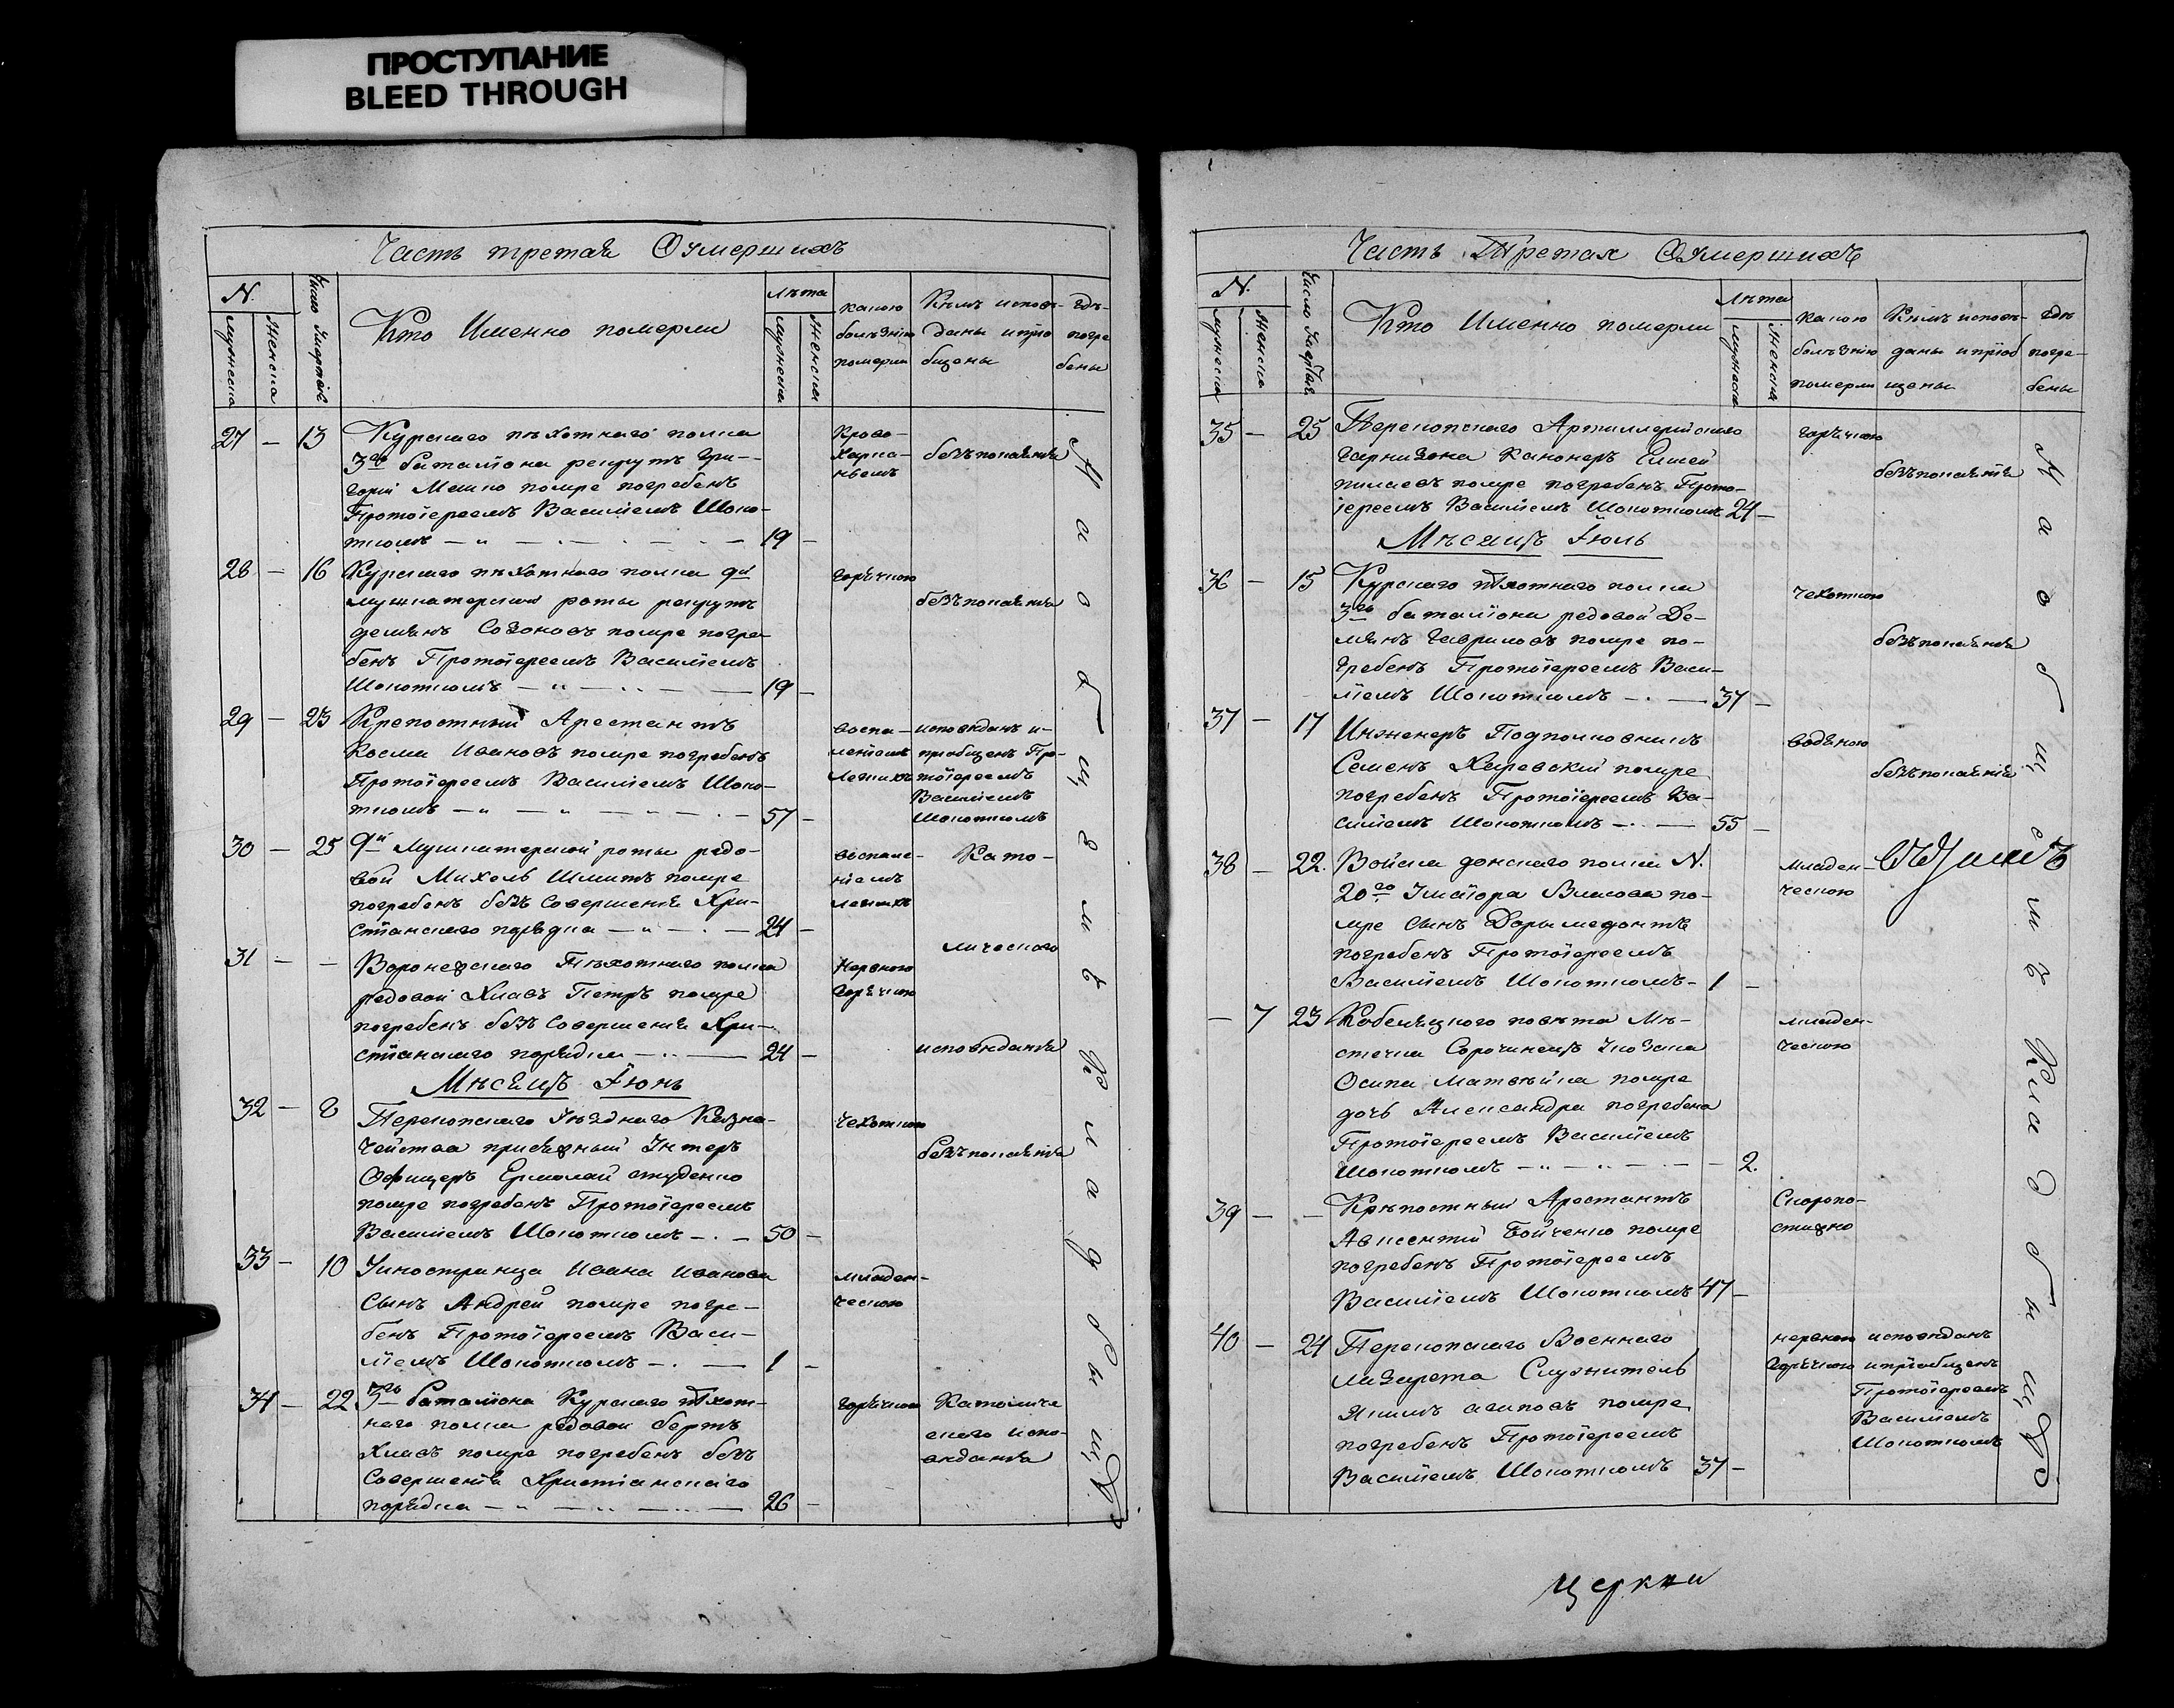 ПРОСТУПАНИЕ
BLEED THROUGH
Часть третая О умершихъ
N.
Мужеска
Женска
Число Смертей
Кто Именно померли
Лѣта
Мужеска
Женски
Какою
болѣзнію
померли
Кѣмъ исповѣ-
даны и прію
бщены
Гдѣ
погре
бены
27 — 13 Курскаго пѣхотнаго полка
3го баталіона рекрутъ Гри-
горій помре погребенъ
Протоіереемъ Василіемъ Шокоткомъ
19 —
Крово-
Харка-
ньемъ
безъ покаянія
28 — 16 Курскаго пѣхотнаго полка 9й
мушкатерской роты рекрутъ
демянъ Созоновъ помре погре-
бенъ Протоіереемъ Василіемъ
Шокоткомъ 19 —
горячкою
безъ покаянія
29 — 23 Крепостный Арестантъ
Косма Ивановъ помре погребенъ
Протоіереемъ Василіемъ Шоко-
ткомъ 57 —
воспа-
леніемъ
Легкихъ
исповѣданъ и-
пріобщенъ Про-
тоіереемъ
Василіемъ
Шокоткомъ
30 — 25 9й Мушкатерской роты редо-
вой Михель Шмитъ помре
погребенъ безъ Совершенія Хри-
стіанскаго порядка 24 —
воспале-
ніемъ
легкихъ
Като-
31 — — Воронежскаго Пѣхотнаго полка
редовой Клавъ Петръ помре
погребенъ безъ Совершенія Хри-
стіанскаго порядка 24 —
Нервною
Горячкою
лическаго
исповѣданія
Мѣсяцъ Іюнь
32 — 8 Перекопскаго Уѣзднаго Казна-
чейства присяжный Унтеръ
Офицеръ Ермолай студенко
помре погребенъ Протоіереемъ
Василіемъ Шокоткомъ — 50 —
Чехоткою
безъ покаянія
33 — 10 Уиностранца Ивана Иванова
Сынъ Андрей помре погре-
бенъ Протоіереемъ Васи-
ліемъ Шокоткомъ — 1 —
младен-
ческою
34 — 22 3го баталіона Курскаго пѣхот-
наго полка редовой бертъ
Клавъ помре погребенъ безъ
Совершенія Христіанскаго
порядка 26 —
горячкою
Католиче
скаго испо-
веданія
На общемъ кладбищѣ
Часть Третая О Умершихъ
N.
Мужеска
Женска
Число
Кто Именно померли
Лѣта
Мужеска
Женска
Какою
болѣзнію
померли
Кѣмъ исповѣ-
даны и пріоб
щены
Гдѣ
погре-
бены
35 — 25 Перекопскаго Артиллерійскаго
гарнизона Каконеръ Елисей
помре погребенъ Прото-
іереемъ Василіемъ Шокоткомъ 24 —
горячкою
безъ покаянія
Мѣсяцъ Іюль
36 — 15 Курскаго пѣхотнаго полка
3го баталіона редовой Де-
мянъ Гавриловъ помре по-
гребенъ Протоіереемъ Васи-
ліемъ Шокоткомъ — 37 —
чехоткою
безъ покаянія
37 — 17 Инженеръ Подполковникъ
Семенъ помре
погребенъ Протоіереемъ Ва-
силіемъ Шокоткомъ — 55 —
водяною
безъ покаянія
38 — 22. Войска донскаго полка N.
20го Власова по-
мре Сынъ Доримедонтъ
погребенъ Протоіереемъ
Василіемъ Шокоткомъ — 1 —
младен-
ческою
— 7 23 повѣта Мѣ-
стечка
Осипа Матвѣйка помре
дочь Александра погребена
Протоіереемъ Василіемъ
Шокоткомъ — 2.
младен-
ческою
39 — — Крѣпостный Арестантъ
Авксентій Бойченко помре
погребенъ Протоіереемъ
Василіемъ Шокоткомъ 47 —
Скоропо-
стижно
40 — 24 Перекопскаго Военнаго
лазарета Служитель
Якимъ помре
погребенъ Протоіереемъ
Василіемъ Шокоткомъ 37 —
нервною
Горячкою
исповѣданъ
и пріобщенъ
Протоіереемъ
Василіемъ
Шокоткомъ
На общемъ Кладбищѣ
Церкви